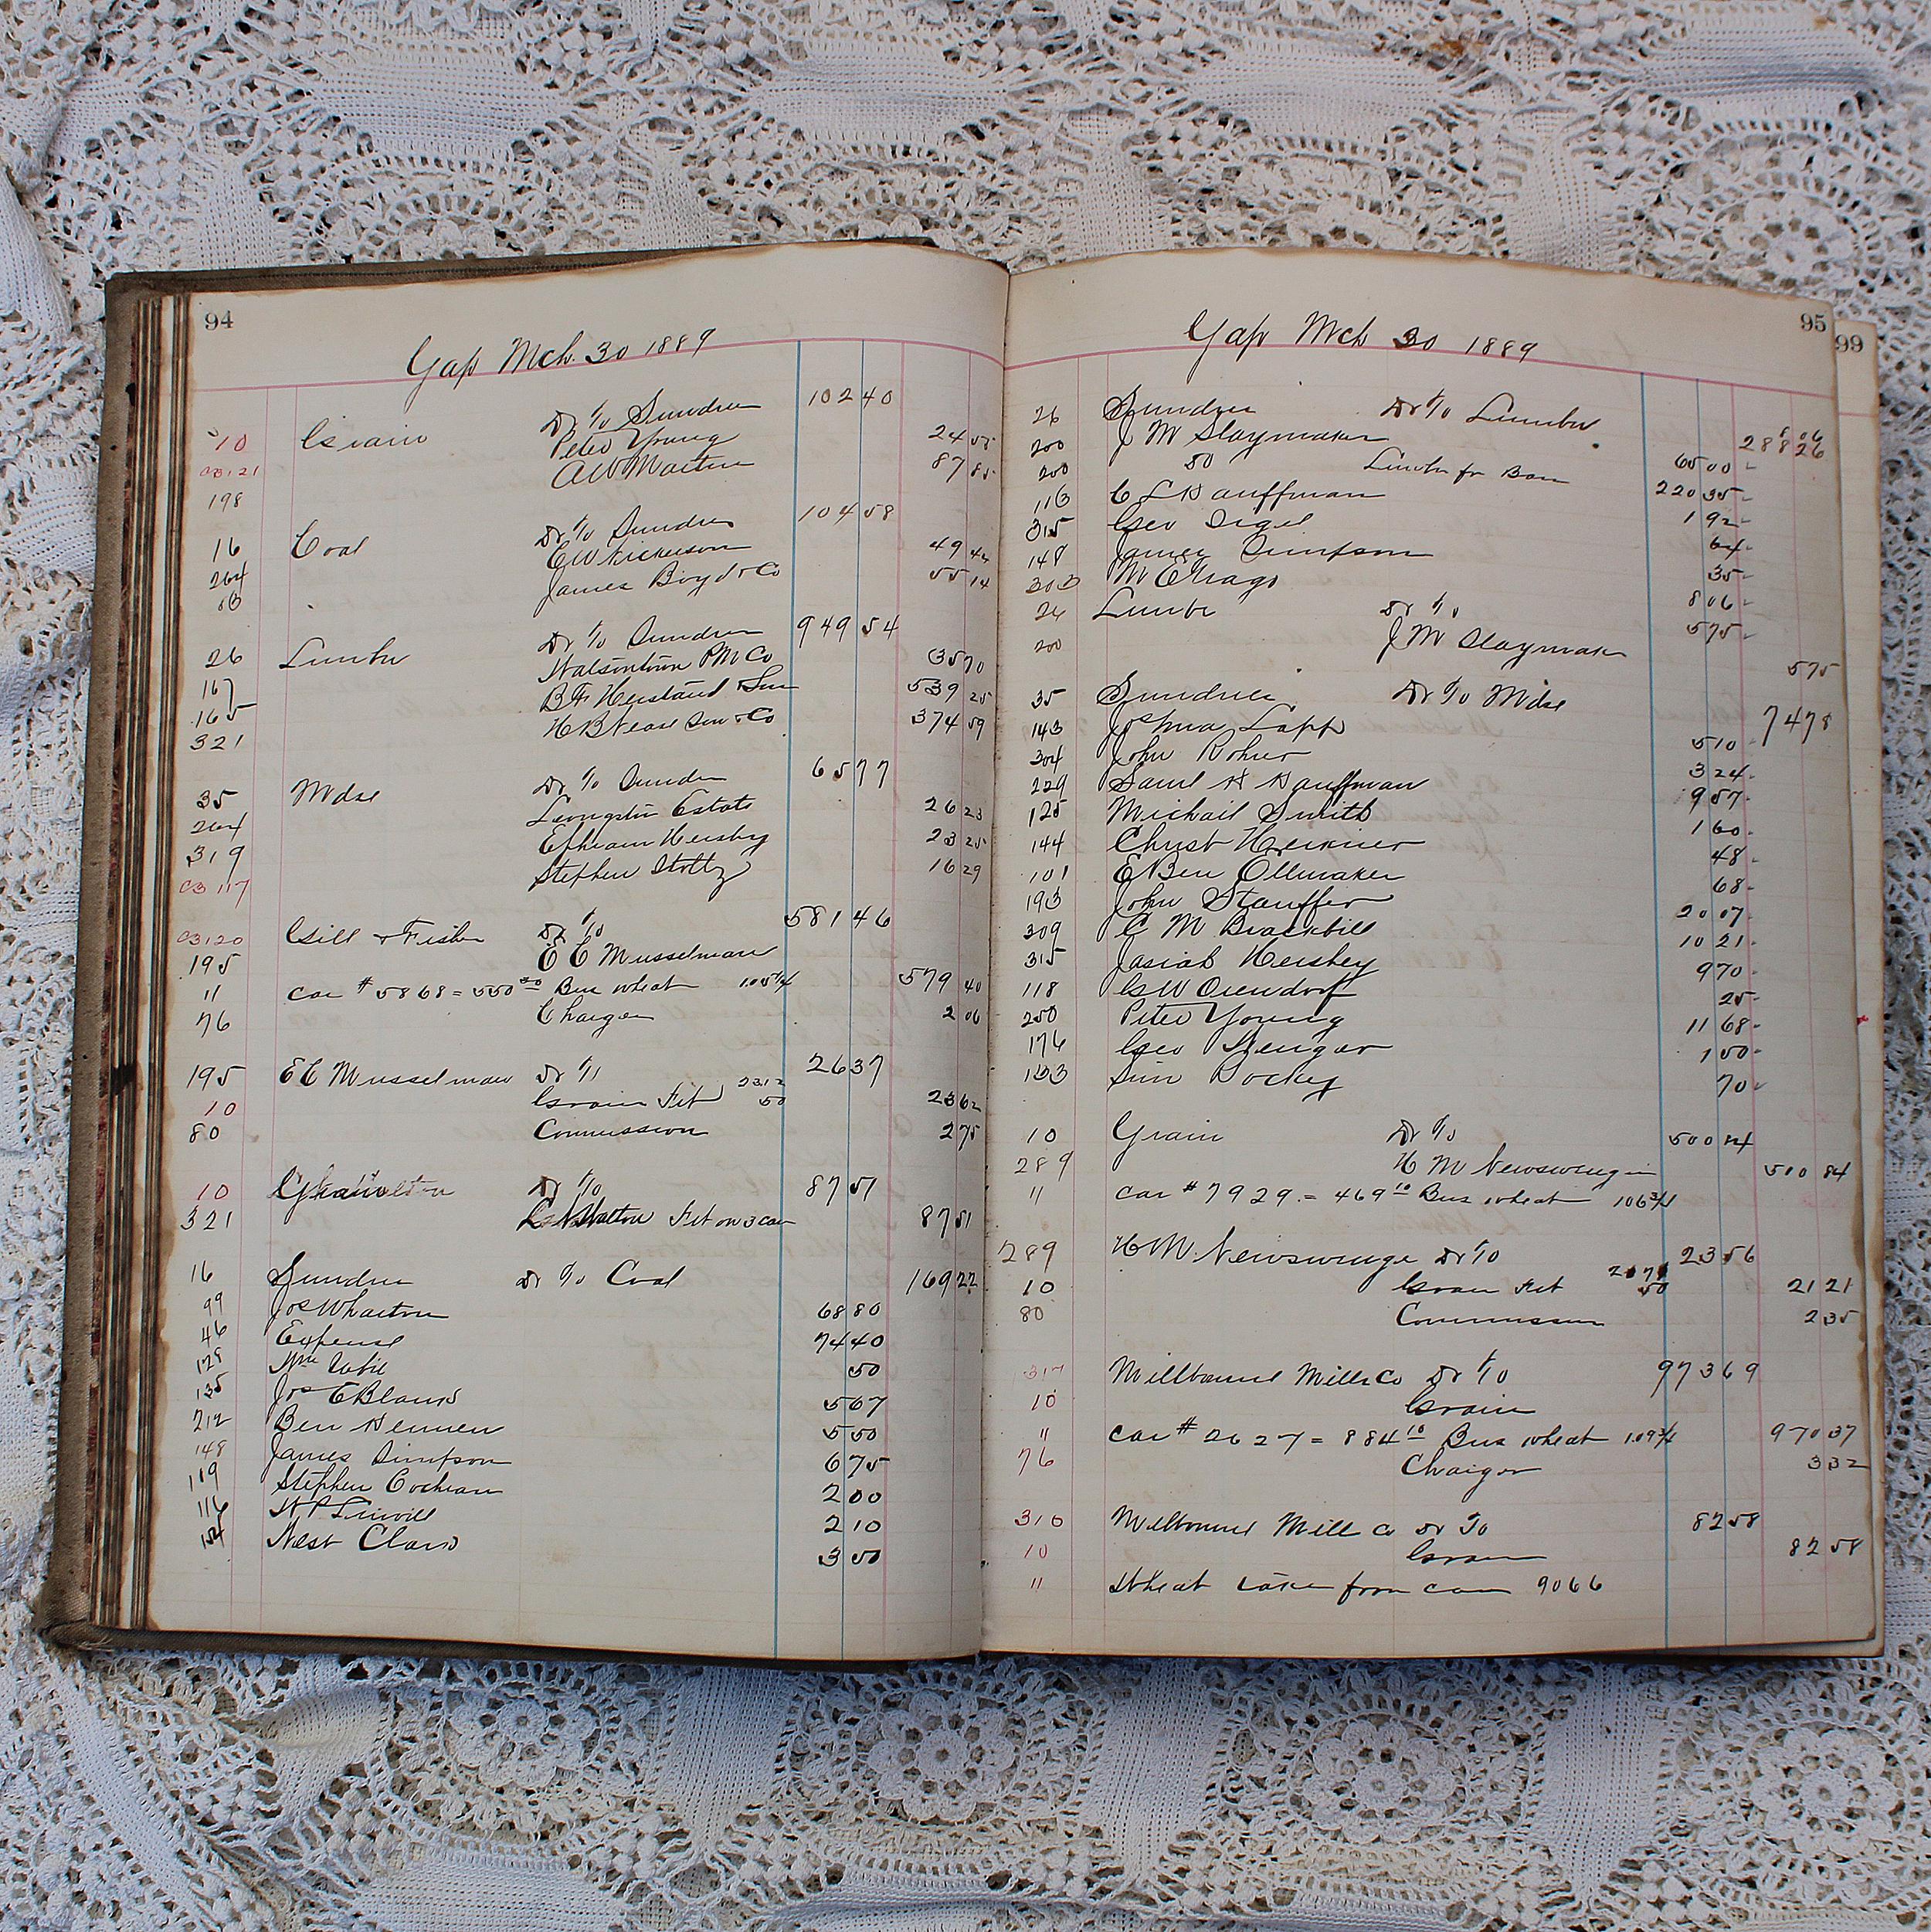 94
Gap Mch. 30 1889
Dr To Sundries 102 40
10 Grain Peter Young 24 55
C3 121 A W Martin 87 85
198
Dr To Sundries 104 58
16 Coal E W Nickerson 49 44
264 James Boyd & Co 55 14
Dr To Sundries 949 54
26 Lumber Watsontown P M Co 35 70
167 B F Heistand & Son 539 25
165 H B Nease Son & Co 374 59
321
Dr To Sundries 65 77
35 Mdse Livingston Estate 26 23
264 Ephraim Hershey 23 25
319 Stephen Stoltz 16 29
C3 117
581 46
C3 120 Gill & Fisher Dr To
195 E C Musselman
" Car # 5868 = 550 30 Bus wheat 1.05 1/4 579 40
76 Charges 2 06
195 E C Musselman Dr To 26 37
10 Grain Frt 23 12 50 23 62
80 Commission 2 75
10 Dr To 87 51
321 Walton Frt on 3 car 87 51
16 Sundries Dr To Coal 169 22
99 Jos Wharton 68 80
46 Expense 74 40
128 Wm 50
135 Jos C Blank 5 67
212 Ben Kennen 5 50
148 James Simpson 6 75
119 Stephen Cochran 2 00
116 Linvill 2 10
154 West Clark 3 50
95
99
Gap Mch 30 1889
26 Sundries Dr To Lumber
200 J M Slaymaker 288 26
200 Do Lumber for Barn 65 00
113 C L Kauffman 220 35
315 Geo Sigel 1 92
148 James Simpson 64
303 M E 35
8 06
26 Lumber Dr To
200 J M Slaymaker 5 75
5 75
35 Sundries Dr To Mdse
143 Joshua Lapp 74 78
304 John Rohrer 5 10
229 Saml K Kauffman 3 24
125 Michail Smith 9 57
144 Christ 1 60
101 E Ben Ellmaker 48
193 John Stauffer 68
309 C M Brackbill 20 07
315 Josiah Hershey 10 21
118 G W 9 70
250 Peter Young 25
176 Geo Wenger 11 68
133 Sim Rockey 1 50
70
10 Grain Dr To 500 84
289 H M Newswenger 500 84
" Car # 7929 = 469 10 Bus wheat 106 3/4
289 H M. Newswenger Dr To 23 56
10 Grain Frt 50 21 21
80 Commission 2 35
317 Millbourne Mills Co Dr To 973 69
10 Grain
" Car # 2627 = 884 10 Bus wheat 1.09 3/4 970 37
76 Charges 3 32
310 Millbourne Mill Co Dr To 82 58
10 Grain 82 58
" Wheat taken from car 9066